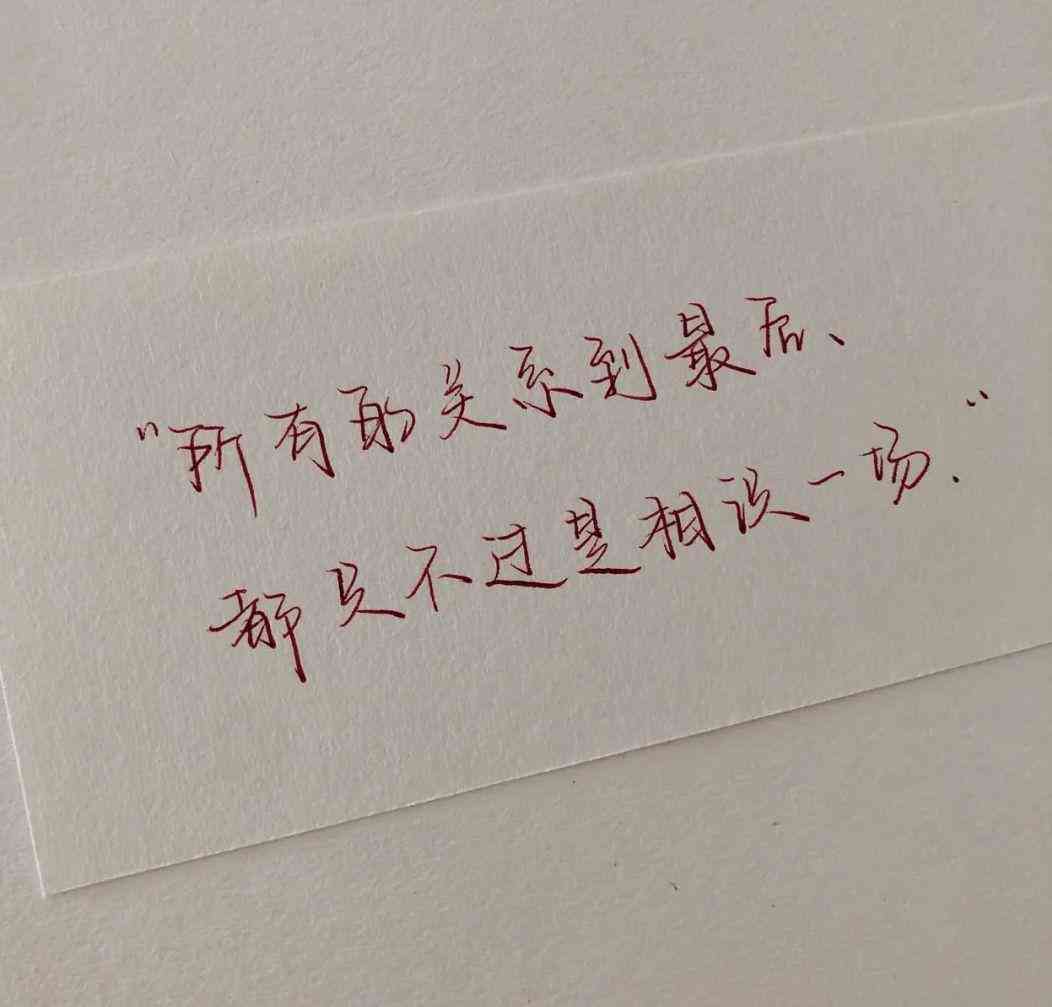 “所有的关系到最后、
都只不过是相识一场.”